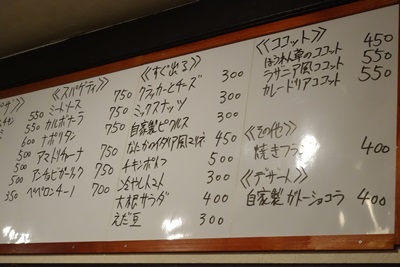 ピザ
550
550
600
500
500
350
《スパゲティ》
ミートソース 750
カルボナーラ 750
ナポリタン 700
アマトリチャーナ 750
アンチョビガーリック 750
ペペロンチーノ 700
《すぐ出る》
クラッカーとチーズ 300
ミックスナッツ 300
自家製ピクルス 300
なんかのイタリア風マリネ 450
チキンポルコ 500
冷やしトマト 300
大根サラダ 400
えだ豆 300
《ココット》 450
ほうれん草のココット 550
ラザニア風ココット 550
カレードリアココット
《その他》
焼きフランク 400
《デザート》
自家製ガトーショコラ 400